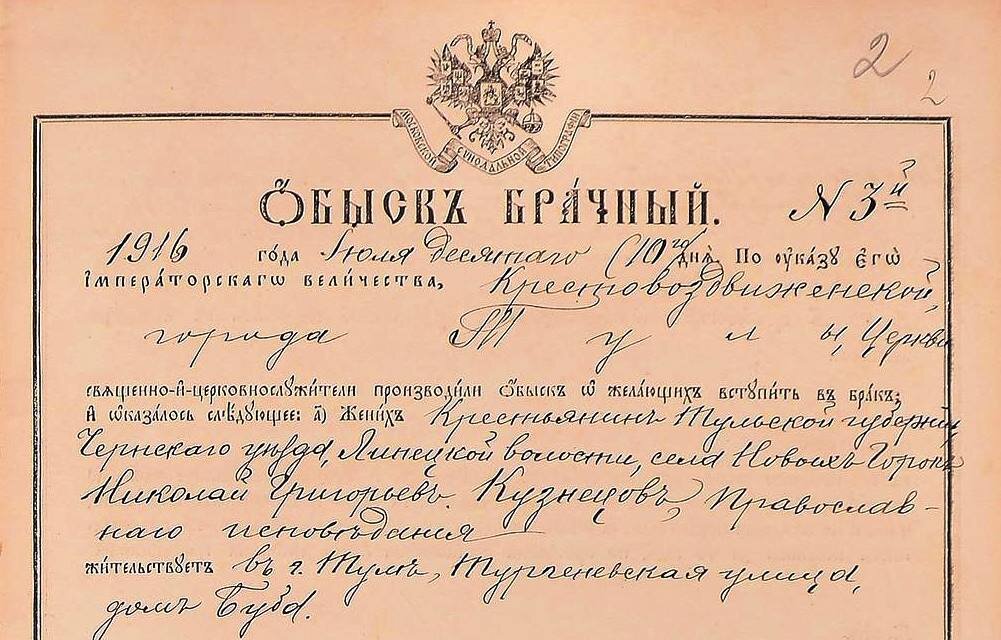 2
2
МОСКОВСКОЙ СѴНОДАЛЬНОЙ ТИПОГРАФІИ
Ѻ҆БЫСКЪ БРА́ЧНЫЙ. N 3й
1916 го́да Іюля десятаго (10го) днѧ̀. По ᲂу҆ка́зу є҆гѡ̀
і҆мпера́торскагѡ вели́чества, Крестовоздвиженской,
города Тулы, Церкви
свѧще́нно-и҆-церковнослꙋжи́тели производи́ли ѻ҆́быскъ ѡ҆ жела́ющихъ встꙋпи́ть въ бра́къ;
и҆ ѡ҆каза́лось слѣ́дꙋющее: а҃) Жени́хъ Крестьянинъ Тульской губерніи,
Чернскаго уѣзда, Липецкой волости, села Новыхъ Горокъ
Николай Григорьевъ Кузнецовъ, Православ-
наго исповѣданія
жи́тельствꙋетъ въ г. Тулѣ, Тургеневская улица,
домъ Буба.